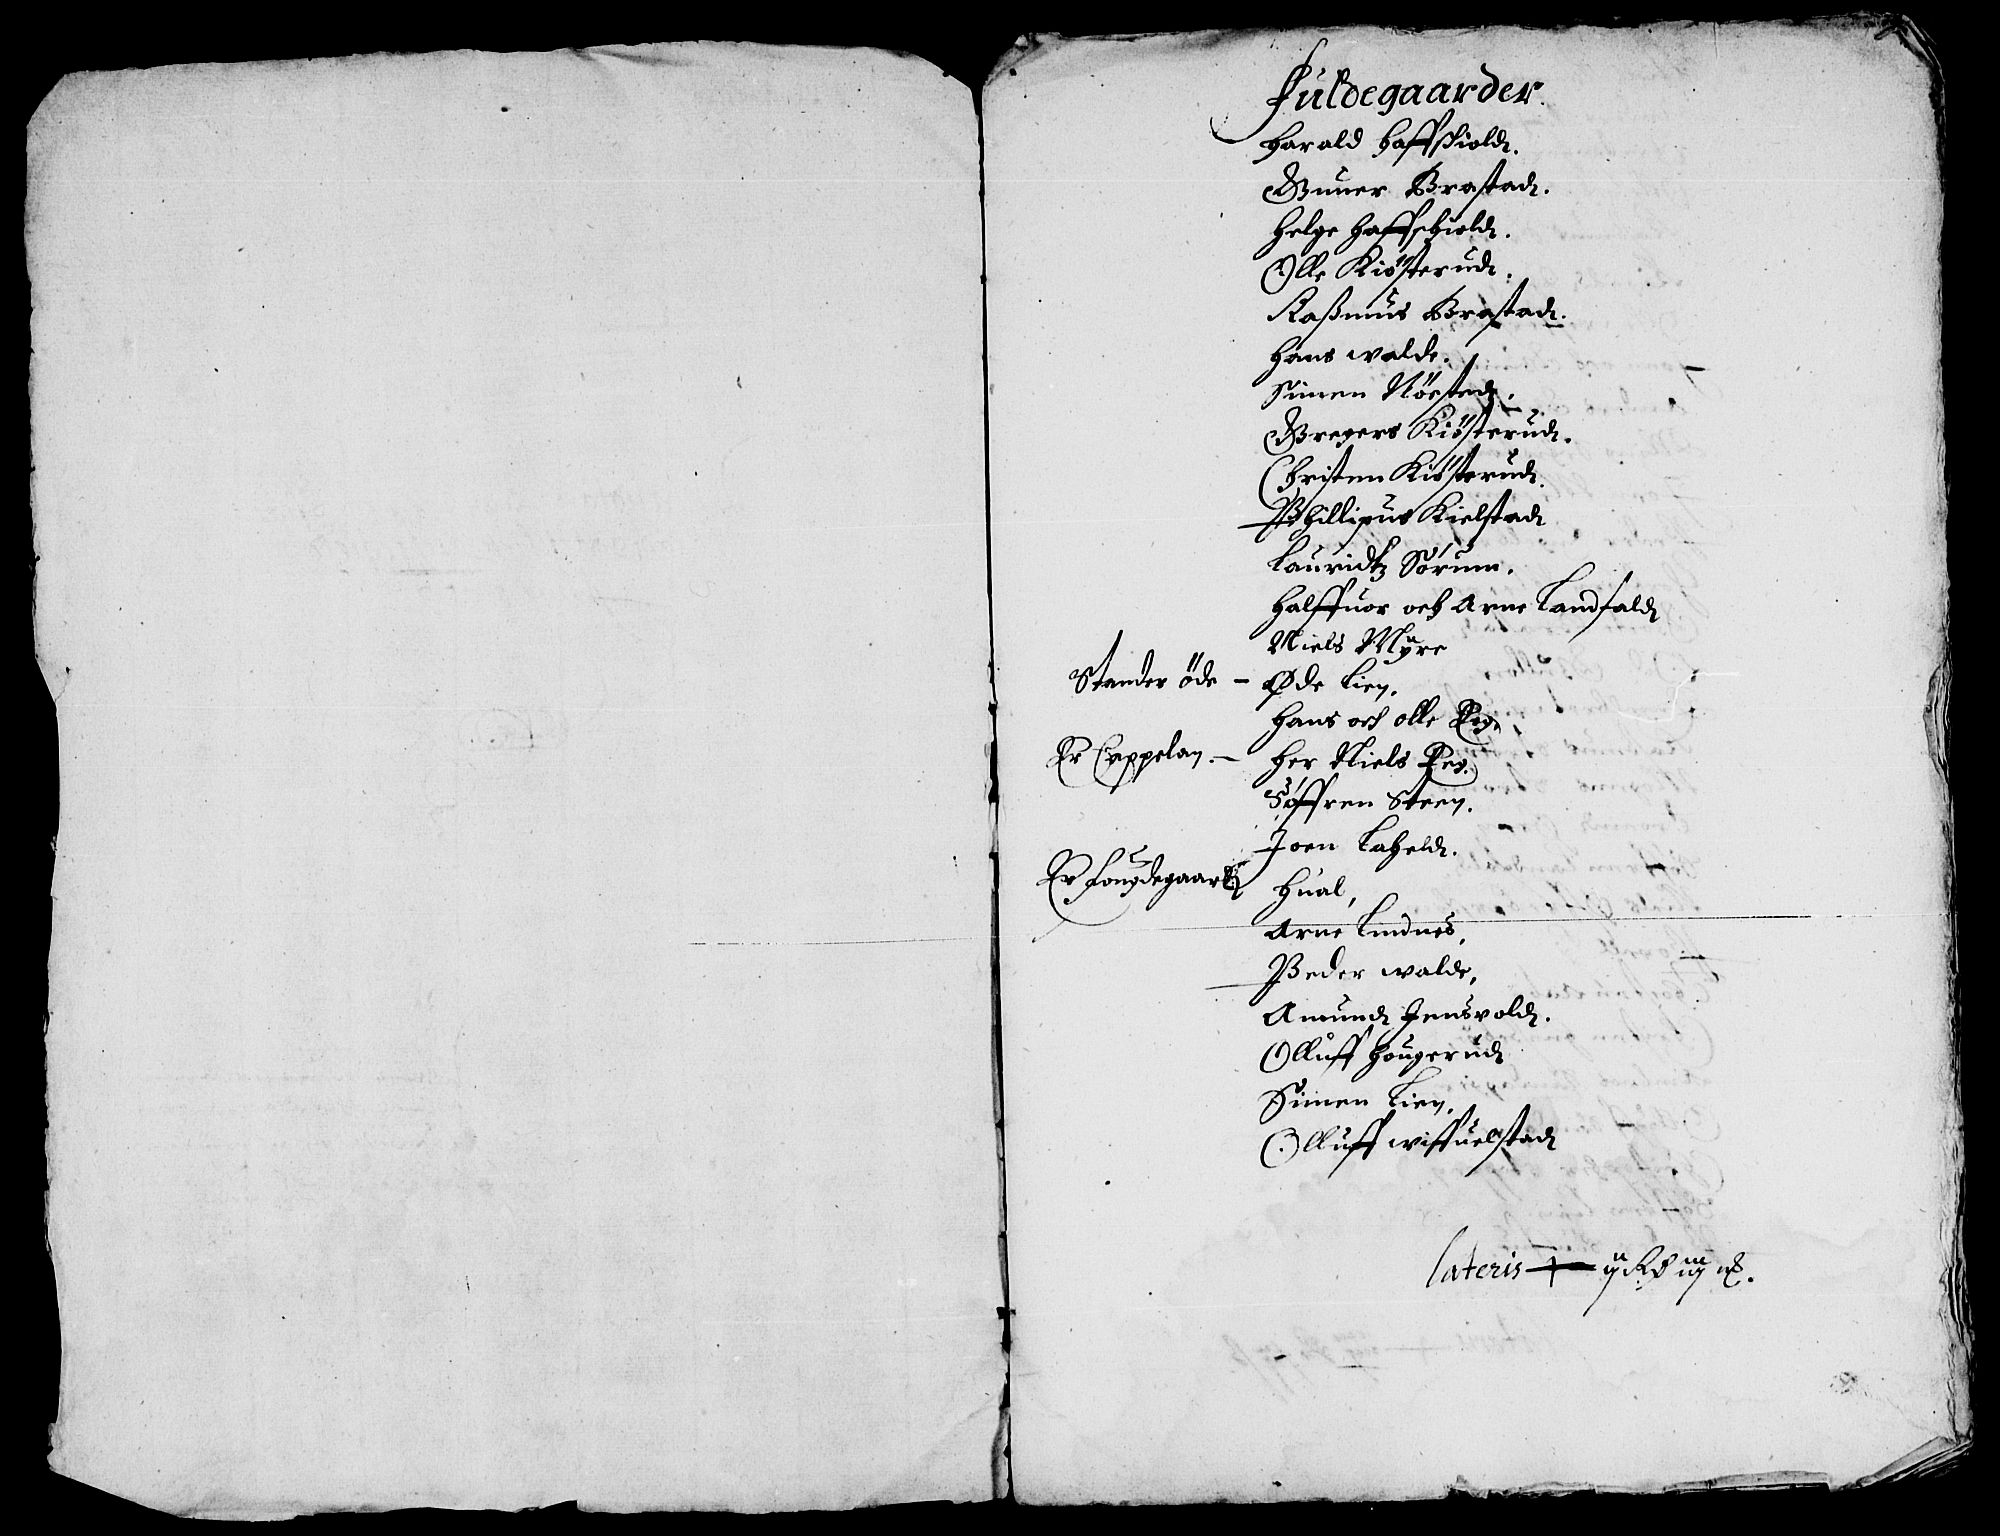 Fuldegaarder.
Harald Haffskiold.
Guner Brastad.
Helge Haffschiold.
Olle Kiösterud.
Raßmus Brastad.
Hans Walde.
Simen Nörsted.
Gregers Kiösterud.
Christen Kiösterud.
Phillipus Kielstad
Lauridtz Sörum.
Halffuor och Arne Landfald
Niels Myre
Stander öde – Øde Lien.
Hans och Olle
Er Cappelan. – Her Niels
Söffren Steen.
Joen Laheld.
Er fougdegaard Hual,
Arne Lindnes,
Peder Walde,
Amund Jensvold.
Olluff Hougerud
Simen Lien,
Olluff Wiffuelstad
Lateris